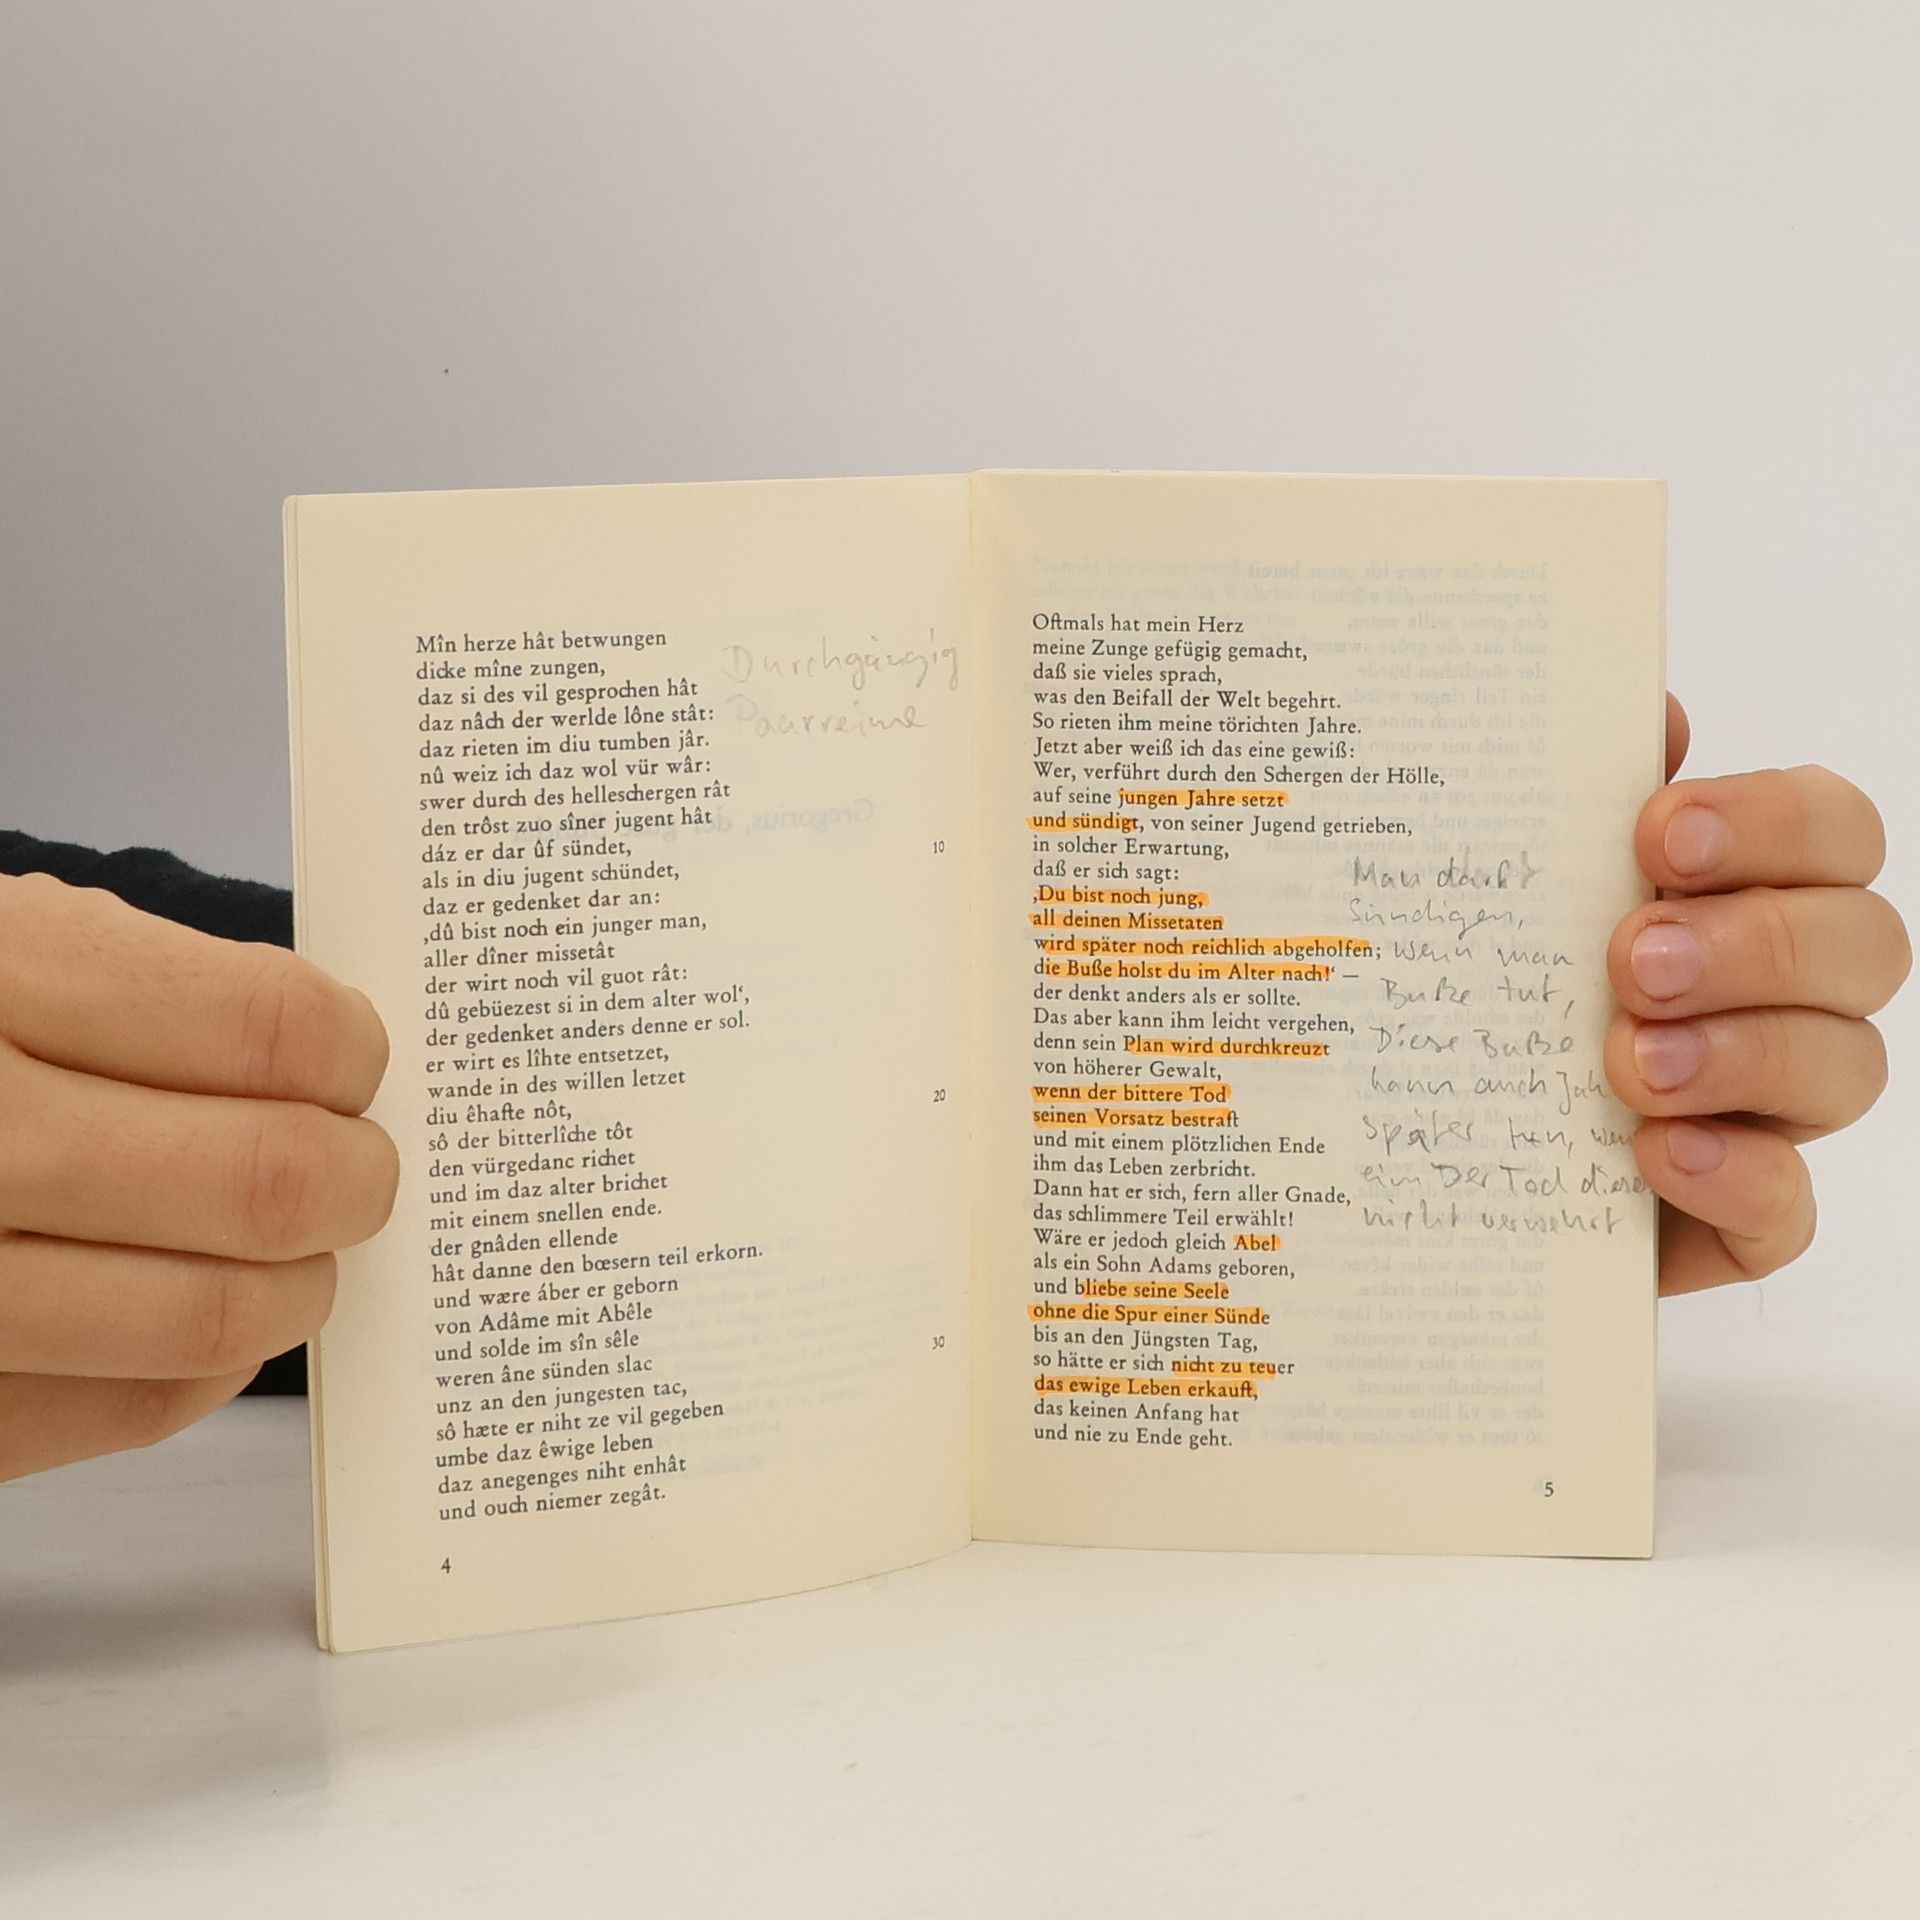 Mîn herze hât betwungen
dicke mîne zungen,
daz si des vil gesprochen hât
daz nâch der werlde lône stât:
daz rieten im diu tumben jâr.
nû weiz ich daz wol vür wâr:
swer durch des helleschergen rât
den trôst zuo sîner jugent hât
dáz er dar ûf sündet,
10
als in diu jugent schündet,
daz er gedenket dar an:
‚dû bist noch ein junger man,
aller dîner missetât
der wirt noch vil guot rât:
dû gebüezest si in dem alter wol‘,
der gedenket anders denne er sol.
er wirt es lîhte entsetzet,
wande in des willen letzet
diu êhafte nôt,
20
sô der bitterlîche tôt
den vürgedanc richet
und im daz alter brichet
mit einem snellen ende.
der gnâden ellende
hât danne den bœsern teil erkorn.
und wære áber er geborn
von Adâme mit Abêle
und solde im sîn sêle
weren âne sünden slac
30
unz an den jungesten tac,
sô hæte er niht ze vil gegeben
umbe daz êwige leben
daz anegenges niht enhât
und ouch niemer zegât.
4
Durchgängig
Paarreime
Oftmals hat mein Herz
meine Zunge gefügig gemacht,
daß sie vieles sprach,
was den Beifall der Welt begehrt.
So rieten ihm meine törichten Jahre.
Jetzt aber weiß ich das eine gewiß:
Wer, verführt durch den Schergen der Hölle,
auf seine jungen Jahre setzt
und sündigt, von seiner Jugend getrieben,
in solcher Erwartung,
daß er sich sagt:
‚Du bist noch jung,
all deinen Missetaten
wird später noch reichlich abgeholfen;
die Buße holst du im Alter nach!‘ —
der denkt anders als er sollte.
Das aber kann ihm leicht vergehen,
denn sein Plan wird durchkreuzt
von höherer Gewalt,
wenn der bittere Tod
seinen Vorsatz bestraft
und mit einem plötzlichen Ende
ihm das Leben zerbricht.
Dann hat er sich, fern aller Gnade,
das schlimmere Teil erwählt!
Wäre er jedoch gleich Abel
als ein Sohn Adams geboren,
und bliebe seine Seele
ohne die Spur einer Sünde
bis an den Jüngsten Tag,
so hätte er sich nicht zu teuer
das ewige Leben erkauft,
das keinen Anfang hat
und nie zu Ende geht.
5
Man darf
Sündigen,
wenn man
Buße tut,
Diese Buße
kann auch Jah
später tun, wen
eim Der Tod diese
nicht verwehrt